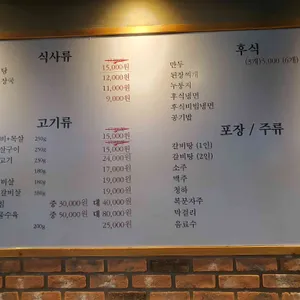 식사류
탕 15,000원
상국 12,000원
11,000원
9,000원
고기류
비+목살 250g 15,000원
15,000원
고기 24,000원
17,000원
비살 180g 19,000원
갈비살 180g 19,000원
찜 중 30,000원 대 40,000원
중 50,000원 대 80,000원
수육 200g 25,000원
후식
만두 (3개)5,000 (6개)
된장찌개
누룽지
후식냉면
후식비빔냉면
공기밥
포장 / 주류
갈비탕 (1인)
갈비탕 (2인)
소주
맥주
청하
복분자주
막걸리
음료수